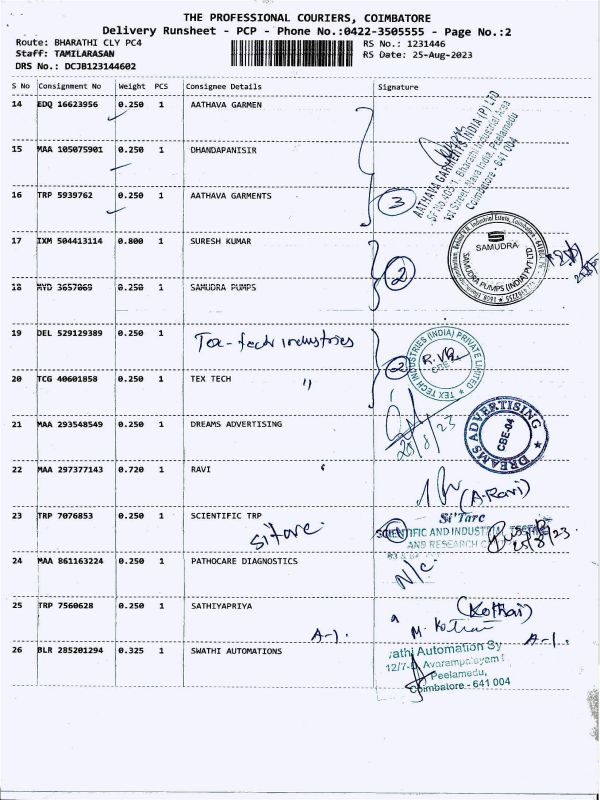 THE PROFESSIONAL COURIERS, COIMBATORE
Delivery Runsheet - PCP - Phone No.:0422-3505555 - Page No.:2
Route: BHARATHI CLY PC4 RS No.: 1231446
Staff: TAMILARASAN RS Date: 25-Aug-2023
DRS No.: DCJB123144602
S No Consignment No Weight PCS Consignee Details Signature
14 EDQ 16623956 0.250 1 AATHAVA GARMEN
15 MAA 105075901 0.250 1 DHANDAPANISIR
AATHAVA GARMENTS INDIA (P) LTD
Bharathi Industrial Area
1st Street, Nava India, Peelamedu
Coimbatore - 641 004
16 TRP 5939762 0.250 1 AATHAVA GARMENTS
3
17 IXM 504413114 0.800 1 SURESH KUMAR
SAMUDRA
SAMUDRA PUMPS (INDIA) PVT LTD
2
18 MYD 3657069 0.250 1 SAMUDRA PUMPS
19 DEL 529129389 0.250 1 Tex-tech industries
TEX TECH INDUSTRIES (INDIA) PRIVATE LIMITED
CBE
2
20 TCG 40601858 0.250 1 TEX TECH "
25/8/23
21 MAA 293548549 0.250 1 DREAMS ADVERTISING
DREAMS ADVERTISING
CBE-04
22 MAA 297377143 0.720 1 RAVI
(A-Ravi)
23 TRP 7076853 0.250 1 SCIENTIFIC TRP
Sitarc
Si'Tarc
SCIENTIFIC AND INDUSTRIAL TESTING
AND RESEARCH
25/8/23.
24 MAA 861163224 0.250 1 PATHOCARE DIAGNOSTICS
N/C.
25 TRP 7560628 0.250 1 SATHIYAPRIYA
(Kothai)
M. Kothai
A-1.
A-1.
26 BLR 285201294 0.325 1 SWATHI AUTOMATIONS
athi Automation Sy
12/7- Avarampalayam
Peelamedu,
Coimbatore - 641 004